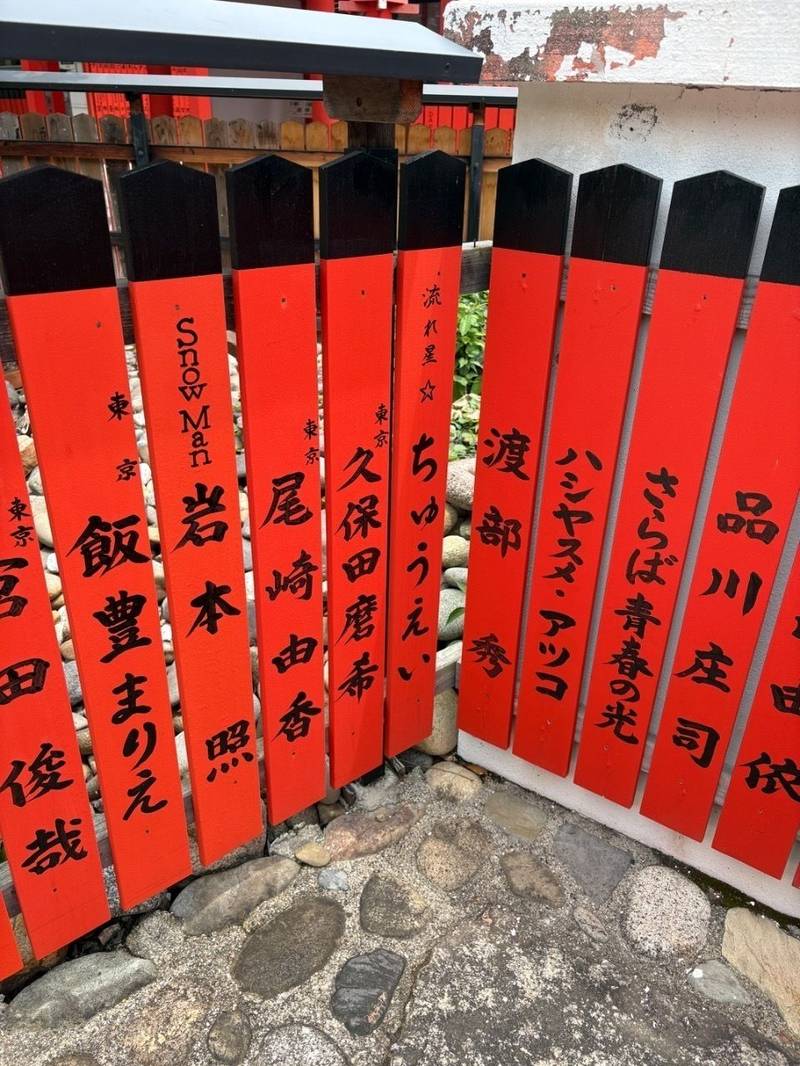 東京
宮田俊哉
東京
飯豊まりえ
Snow Man
岩本照
東京
尾崎由香
東京
久保田磨希
流れ星☆
ちゅうえい
渡部秀
ハシヤスメ・アツコ
さらば青春の光
品川庄司
由依